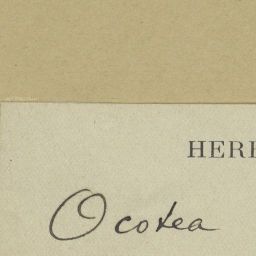 HER
Ocotea